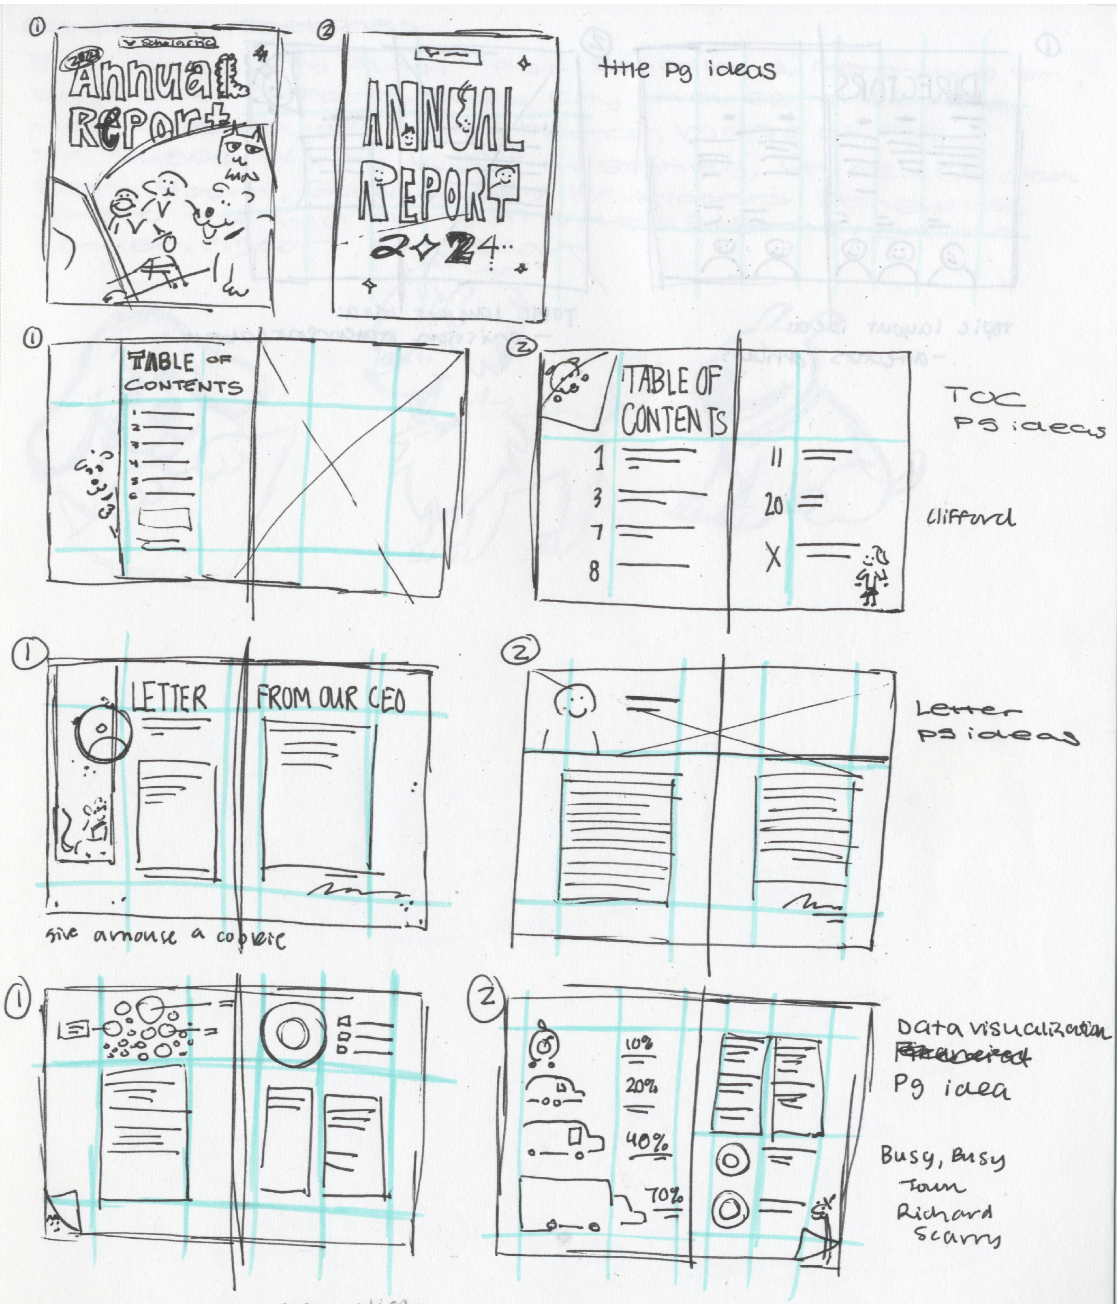 ①
Scholastic
2024
Annual
Report
②
ANNUAL
REPORT
2024
title pg ideas
①
TABLE OF
CONTENTS
1
2
3
4
5
6
②
TABLE OF
CONTENTS
1
3
7
8
11
20
X
TOC
pg ideas
Clifford
①
LETTER FROM OUR CEO
give a mouse a cookie
②
Letter
pg ideas
①
②
10%
20%
40%
70%
Data visualization
Pg idea
Busy, Busy
Town
Richard
Scarry
DIRECTORS
topic layout ideas:
TOPIC layout idea: